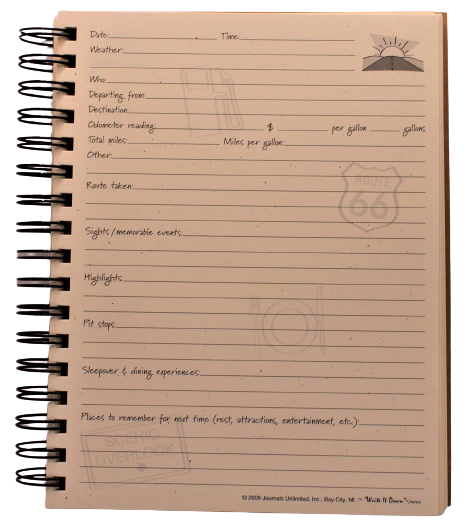 Date: Time:
Weather:
Who:
Departing from:
Destination:
Odometer reading: $ per gallon gallons
Total miles: Miles per gallon:
Other:
ROUTE
66
Route taken:
Sights/memorable events:
Highlights:
Pit stops:
Sleepover & dining experiences:
Places to remember for next time (rest, attractions, entertainment, etc.):
SCENIC
OVERLOOK
© 2009 Journals Unlimited, Inc., Bay City, MI ~ "Write It Down"